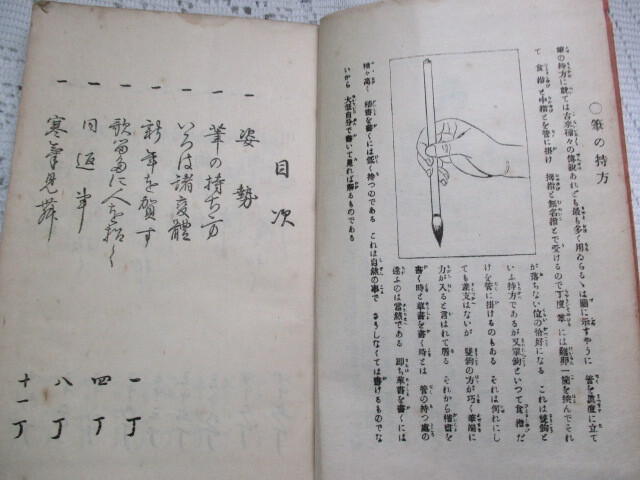 ◯筆の持方
筆の持方に就ては古来種々の傳説あれども最も多く用ゐらるゝは圖に示すやうに 管を眞直に立て
て 食指と中指とを管に掛け 拇指と無名指とで受けるので丁度 掌には鷄卵一箇を挾んでそれ
が落ちない位の恰好になる これは雙鉤と
いふ持方であるが又單鉤といつて食指だ
けを管に掛けるのもある それは何れにし
ても差支はないが 雙鉤の方が巧く筆端に
力が入ると言はれて居る それから楷書を
書く時と草書を書く時とは 管の持つ處の
違ふのは當然である 即ち草書を書くには
稍々高く 楷書を書くには低く持つのである これは自然の事で さうしなくては書けるものでな
いから 大抵自分で書いて見れば解るものである
目次
一 姿勢
一 筆の持ち方 一丁
一 いろは諸変體
一 新年を賀す 四丁
一 歌留多に人を招く 八丁
一 同返事
一 寒氣見舞 十一丁